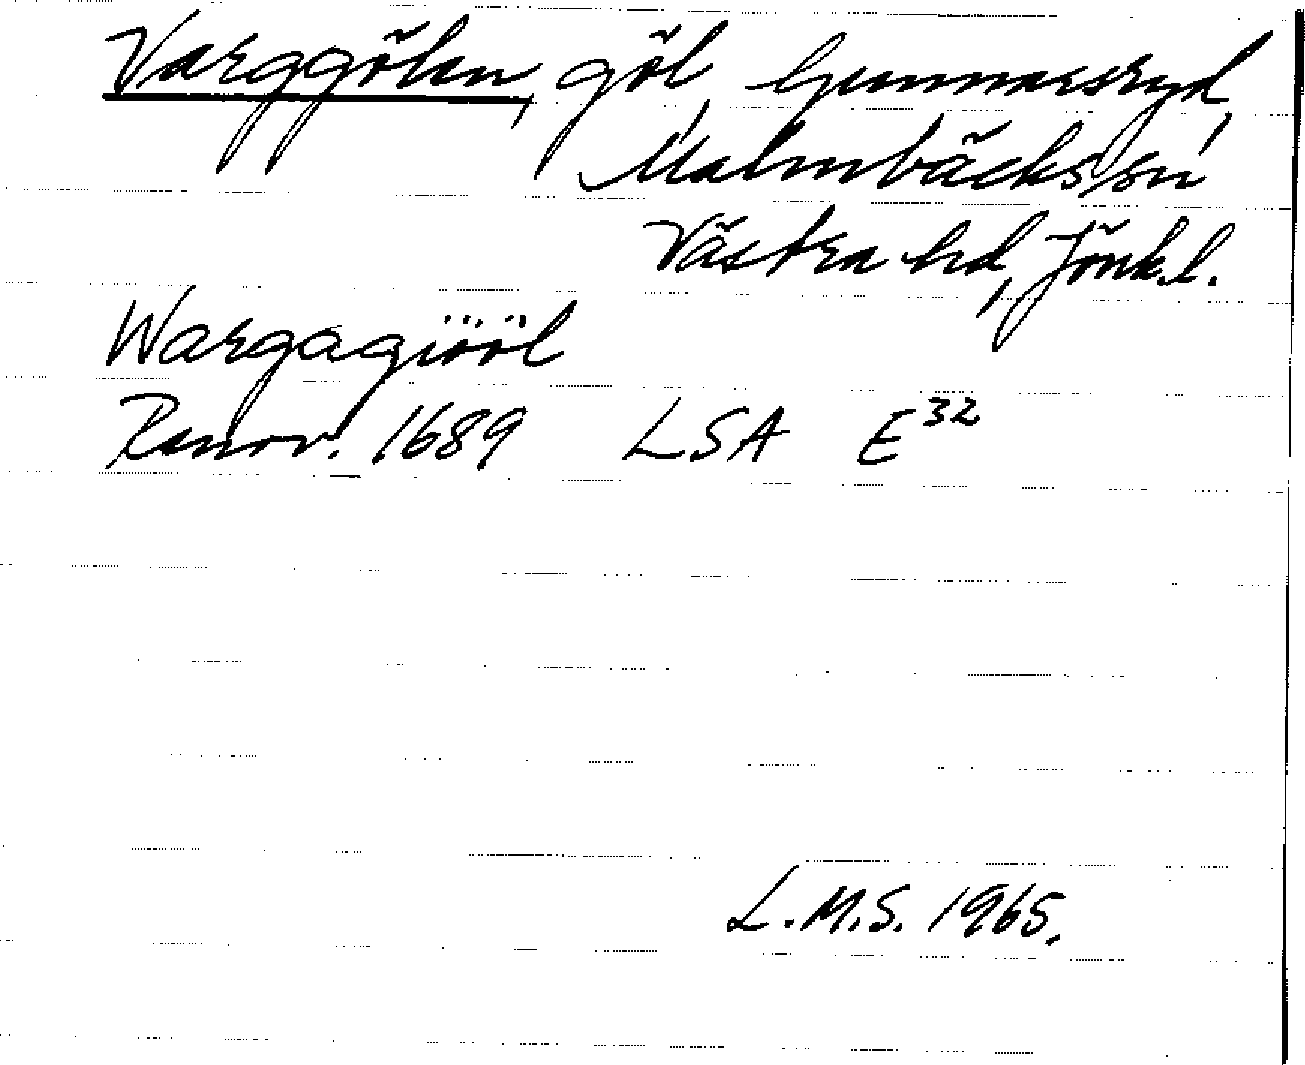 Varggölen, göl, Gunnarsryd,
Malmbäcks sn
Västra hd, Jönk.l.
Wargagiööl
Renov. 1689 LSA E32
L.M.S. 1965.